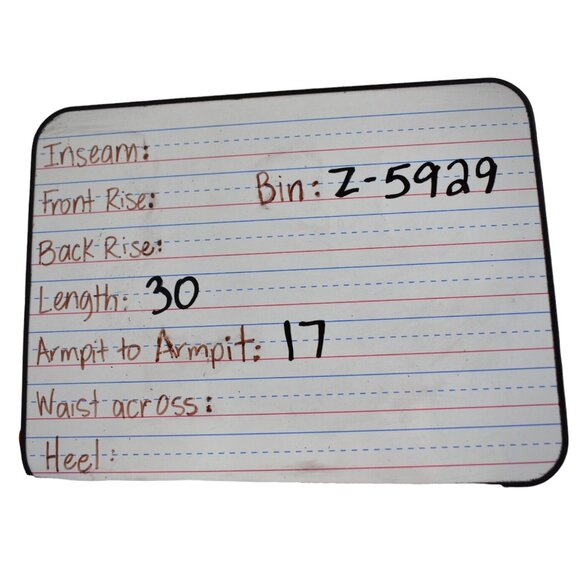 Inseam:
Front Rise:
Bin: Z-5929
Back Rise:
Length: 30
Armpit to Armpit: 17
Waist across:
Heel: